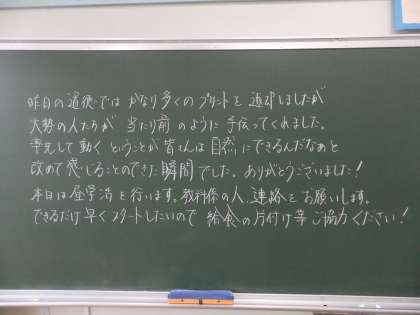 昨日の道徳ではかなり多くのプリントを返却しましたが
大勢の人たちが当たり前のように手伝ってくれました。
率先して動くということが皆さんは自然にできるんだなぁと
改めて感じることのできた瞬間でした。ありがとうございました!
本日は昼学活を行います。教科係の人、連絡をお願いします。
できるだけ早くスタートしたいので給食の片付け等ご協力ください!